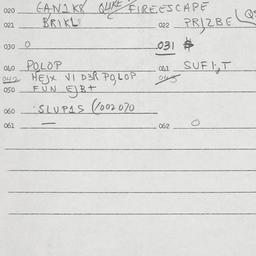 020 GAN1K8 QUKE FIREESCAPE
021 BRIKL 022 PRIZBE
030 0 031 #
040 POLOP 041 SUFI,T
042 HEJX VI D3R POLOP 043
050 FUN EJB+
060 SLUP1S (/002070
061 — 062 O